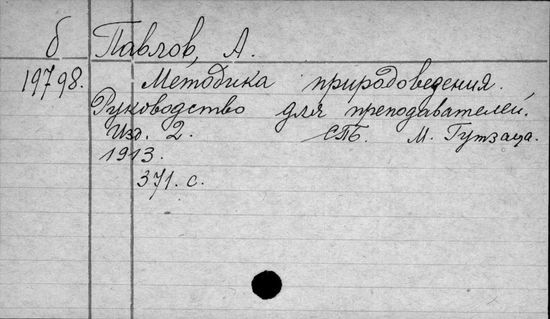 б Павлов, А.
19798. Методика природоведения.
Руководство для преподавателей.
Изд. 2. СПБ. М. Гутзаца.
1913.
371. с.